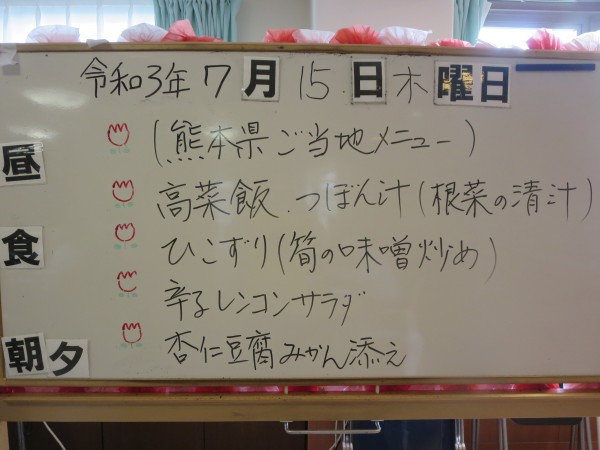 令和3年7月15日木曜日
(熊本県ご当地メニュー)
高菜飯.つぼん汁(根菜の清汁)
ひこずり(筍の味噌炒め)
辛子レンコンサラダ
杏仁豆腐みかん添え
昼
食
朝夕